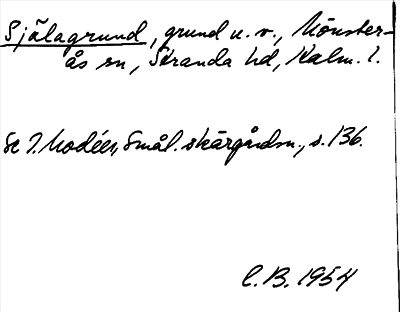 Själagrund, grund u. v., Mönster-
ås sn, Stranda hd, Kalm. l.
Se I. Modéer, Smål. skärgårdsn., s. 136.
C. B. 1954